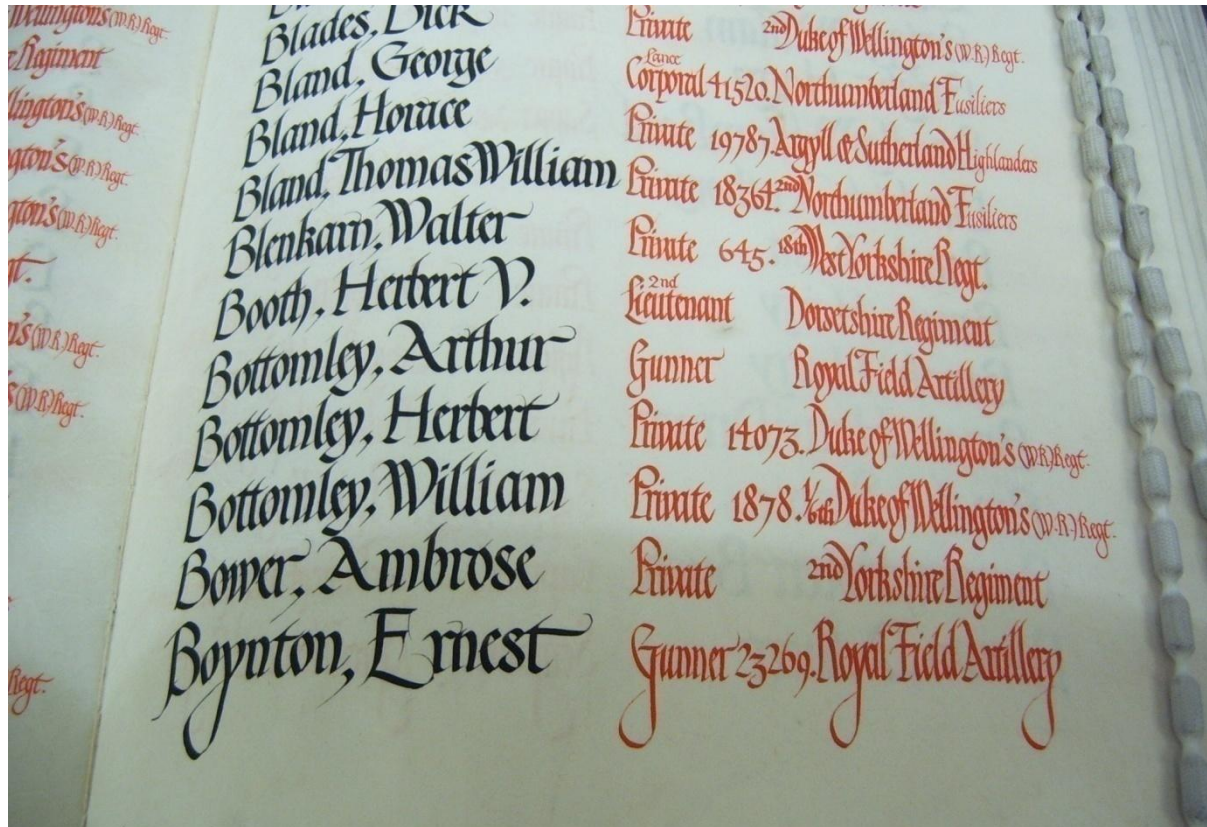 Wellington's (W.R) Regt.
Regiment
(W.R) Regt.
(W.R) Regt.
(W.R) Regt.
(W.R) Regt.
(W.R) Regt.
Regt.
Blades, Dick Private 2nd Duke of Wellington's (W.R) Regt.
Bland, George Lance Corporal 41520. Northumberland Fusiliers
Bland, Horace Private 19787. Argyll & Sutherland Highlanders
Bland, Thomas William Private 18364. 2nd Northumberland Fusiliers
Blenkarn, Walter Private 645. 18th West Yorkshire Regt.
Booth, Herbert V. 2nd Lieutenant Dorsetshire Regiment
Bottomley, Arthur Gunner Royal Field Artillery
Bottomley, Herbert Private 14073. Duke of Wellington's (W.R) Regt.
Bottomley, William Private 1878. 1/6th Duke of Wellington's (W.R) Regt.
Bower, Ambrose Private 2nd Yorkshire Regiment
Boynton, Ernest Gunner 23269. Royal Field Artillery